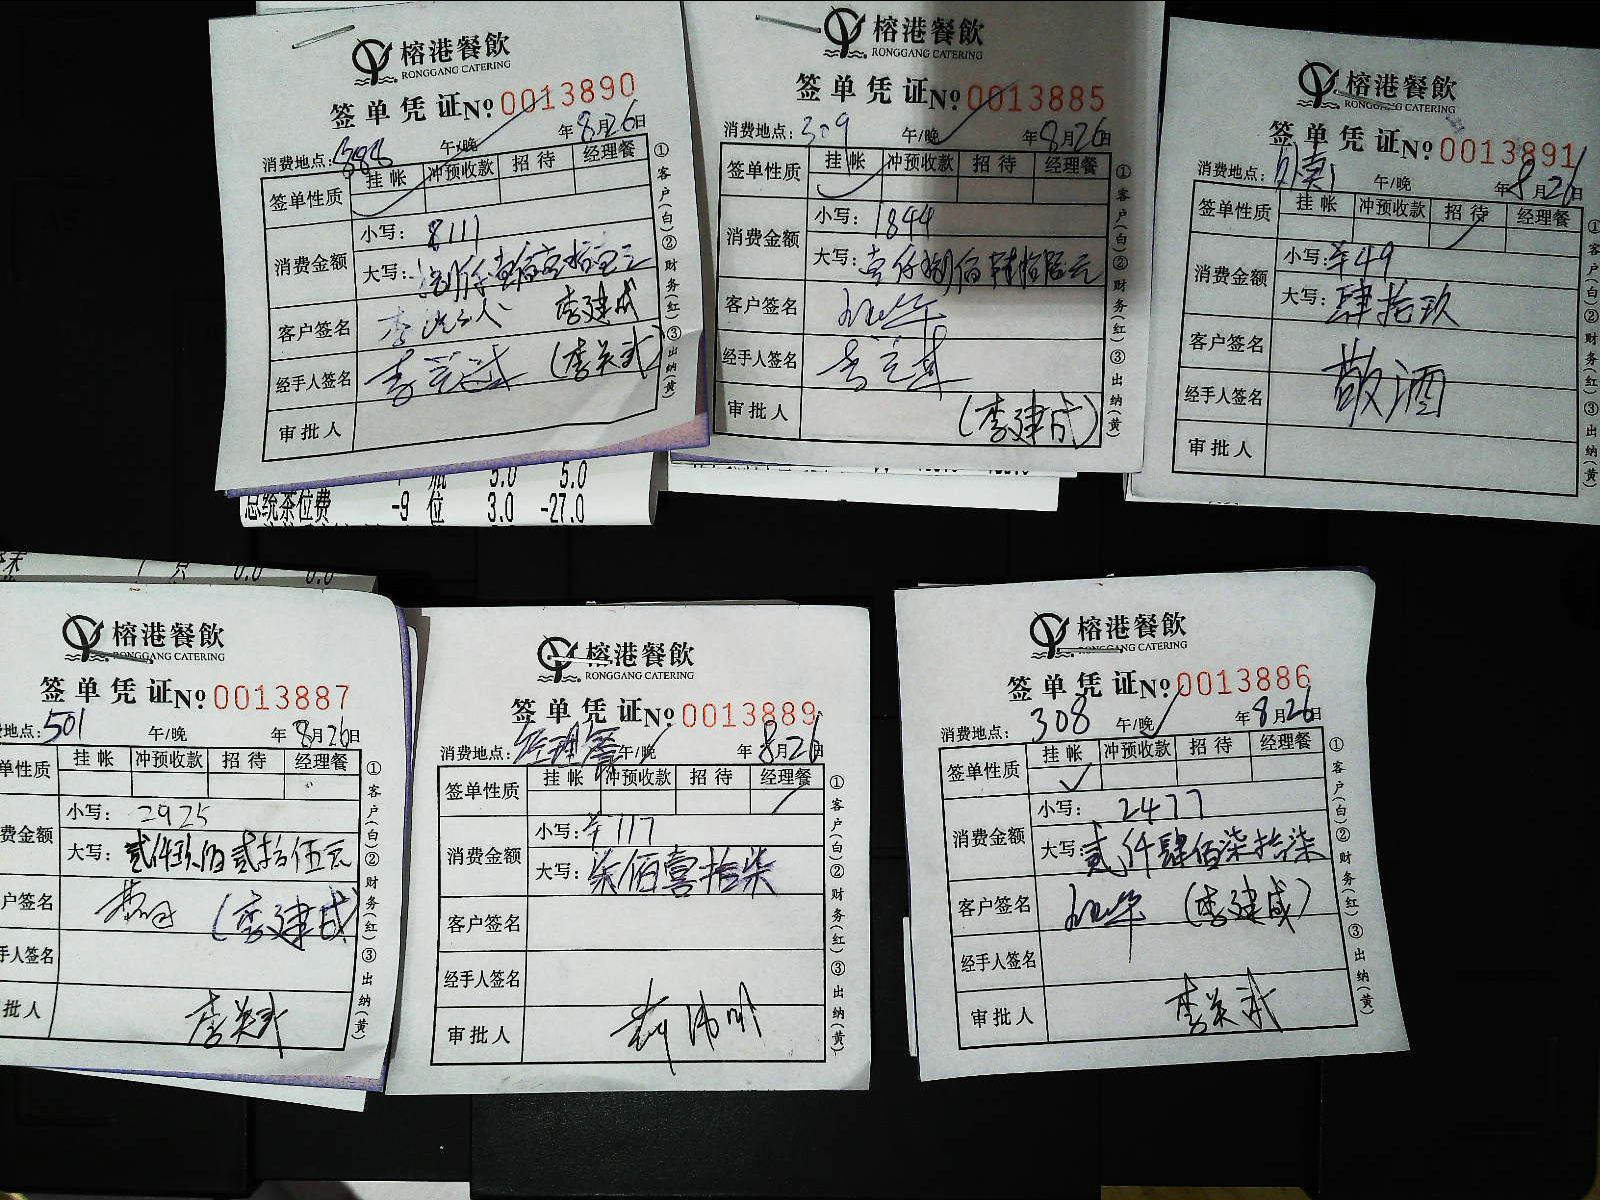 榕港餐飲
RONGGANG CATERING
签单凭证 No 0013890
消费地点：888 午/晚 年8月26日
签单性质 挂帐 冲预收款 招待 经理餐
消费金额 小写：8111
大写：捌仟壹佰壹拾壹元
客户签名 李 人 李建成
经手人签名 (李关武)
审批人
①客户(白)②财务(红)③出纳(黄)
瓶 5.0 5.0
总统茶位费 -9 位 3.0 -27.0
榕港餐飲
RONGGANG CATERING
签单凭证 No 0013885
消费地点：309 午/晚 年8月26日
签单性质 挂帐 冲预收款 招待 经理餐
消费金额 小写：1844
大写：壹仟捌佰肆拾肆元
客户签名
经手人签名
审批人 (李建成)
①客户(白)②财务(红)③出纳(黄)
榕港餐飲
RONGGANG CATERING
签单凭证 No 0013891
消费地点：外卖 午/晚 年8月26日
签单性质 挂帐 冲预收款 招待 经理餐
消费金额 小写：¥49
大写：肆拾玖
客户签名
经手人签名 敬酒
审批人
①客户(白)②财务(红)③出纳(黄)
1 只 0.0 0.0
榕港餐飲
RONGGANG CATERING
签单凭证 No 0013887
费地点：501 午/晚 年8月26日
单性质 挂帐 冲预收款 招待 经理餐
费金额 小写：2925
大写：贰仟玖佰贰拾伍元
户签名 (李建成)
手人签名
批人 李关武
①客户(白)②财务(红)③出纳(黄)
榕港餐飲
RONGGANG CATERING
签单凭证 No 0013889
消费地点：经理餐 午/晚 年8月26日
签单性质 挂帐 冲预收款 招待 经理餐
消费金额 小写：¥717
大写：柒佰壹拾柒
客户签名
经手人签名
审批人
①客户(白)②财务(红)③出纳(黄)
榕港餐飲
RONGGANG CATERING
签单凭证 No 0013886
消费地点：308 午/晚 年8月26日
签单性质 挂帐 冲预收款 招待 经理餐
消费金额 小写：2477
大写：贰仟肆佰柒拾柒
客户签名 (李建成)
经手人签名
审批人 李关武
①客户(白)②财务(红)③出纳(黄)